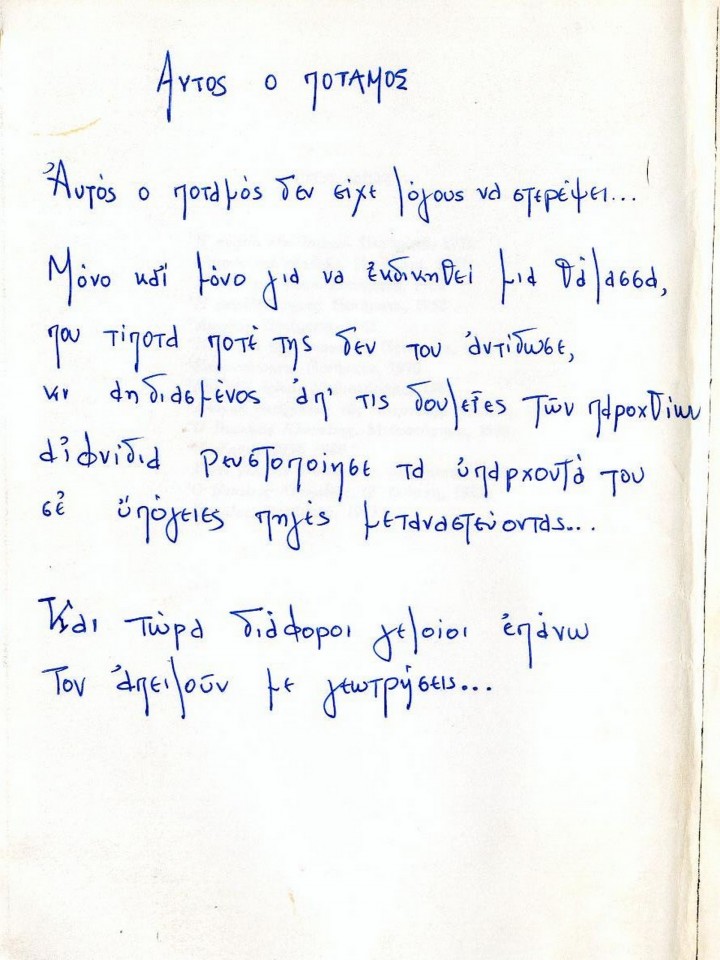 Αυτος ο ποταμος
Ἀυτὸς ο ποταμὸς δεν είχε λόγους να στερέψει...
Μόνο καί μόνο για να ἐκδικηθεί μια θάλασσα,
που τίποτα ποτὲ της δεν του ἀντίδωσε,
κι αηδιασμένος ἀπ' τις δουλεῖες τῶν παροχθίων
αἰφνίδια ρευστοποίησε τα ὑπαρχοντά του
σὲ ὑπόγειες πηγὲς μεταναστεύοντας...
Και τώρα διάφοροι γελοίοι ἐπάνω
Τον ἀπειλοῦν με γεωτρήσεις...